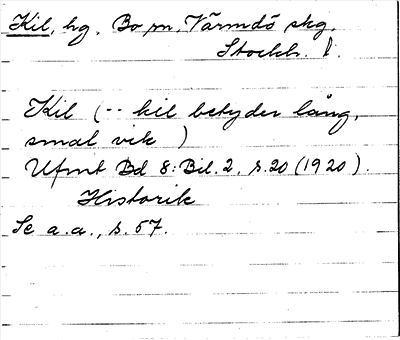 Kil, hg, Bo sn, Värmdö skg,
Stockh. l.
Kil (-- kil betyder lång,
smal vik )
Ufmt Bd 8: Bil. 2, s. 20 (1920).
Historik
Se a.a., s. 57.